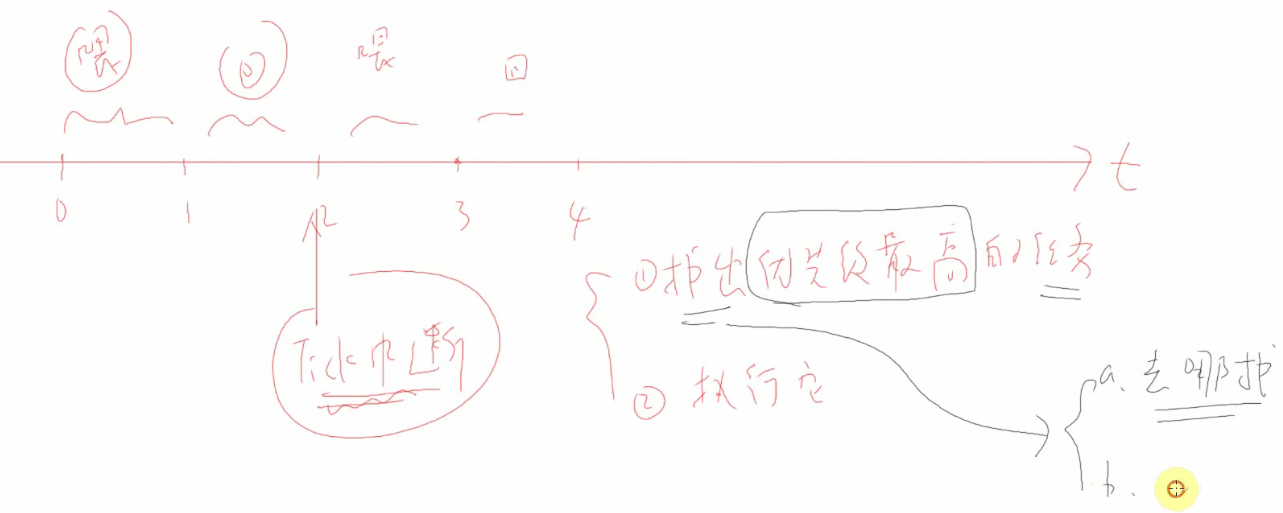 喂 回 喂 回
t
0 1 2 3 4
Tick中断
①找出优先级最高的任务
②执行它
a. 去哪找
b.